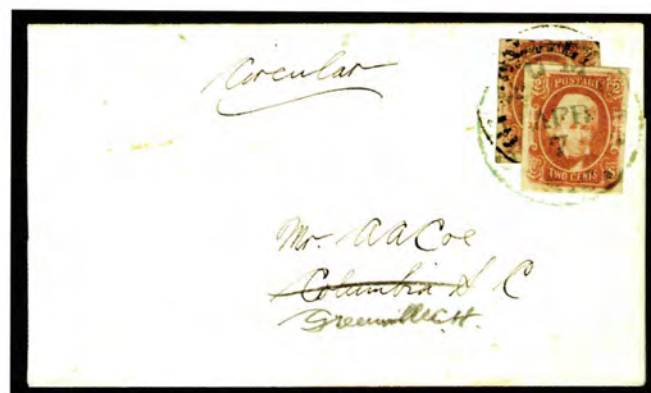 Circular
POSTAGE
APR
7
TWO CENTS
Mr. A A Coe
Columbia S C
Greenville C.H.